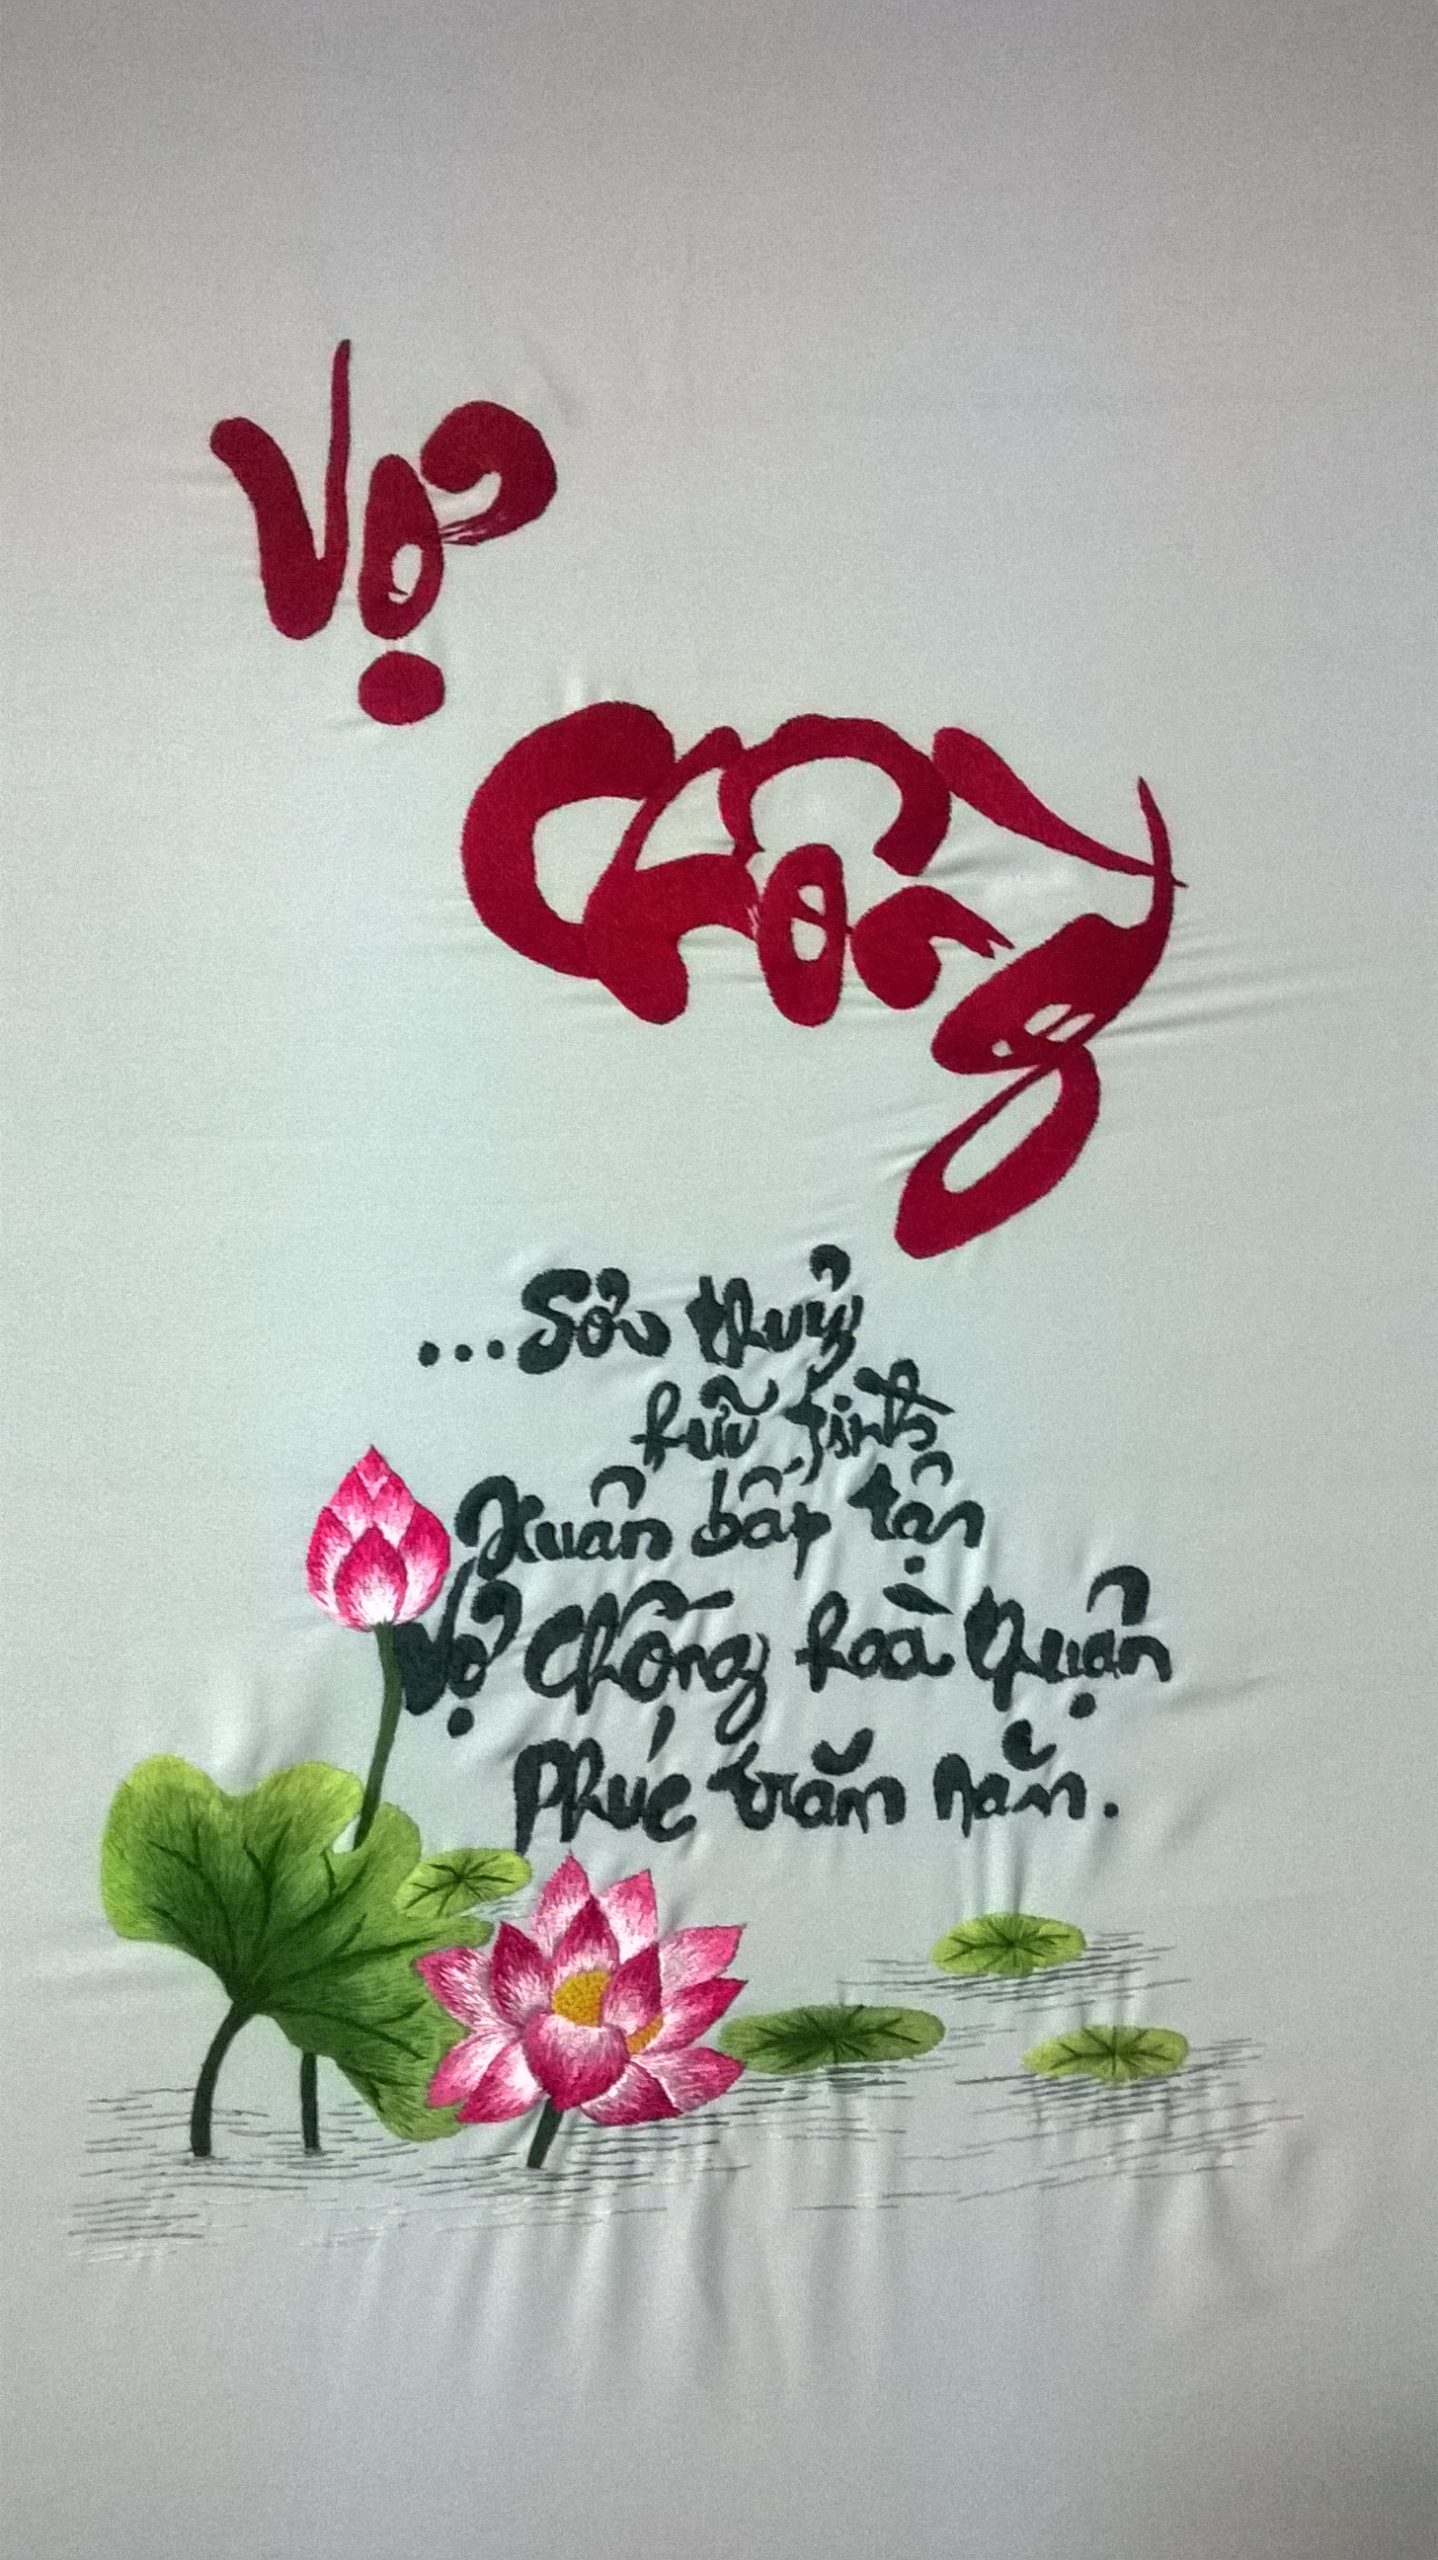 Vợ
Chồng
...Sơn thuỷ
hữu tình
Xuân bất tận
Vợ Chồng hoà thuận
Phúc trăm năm.